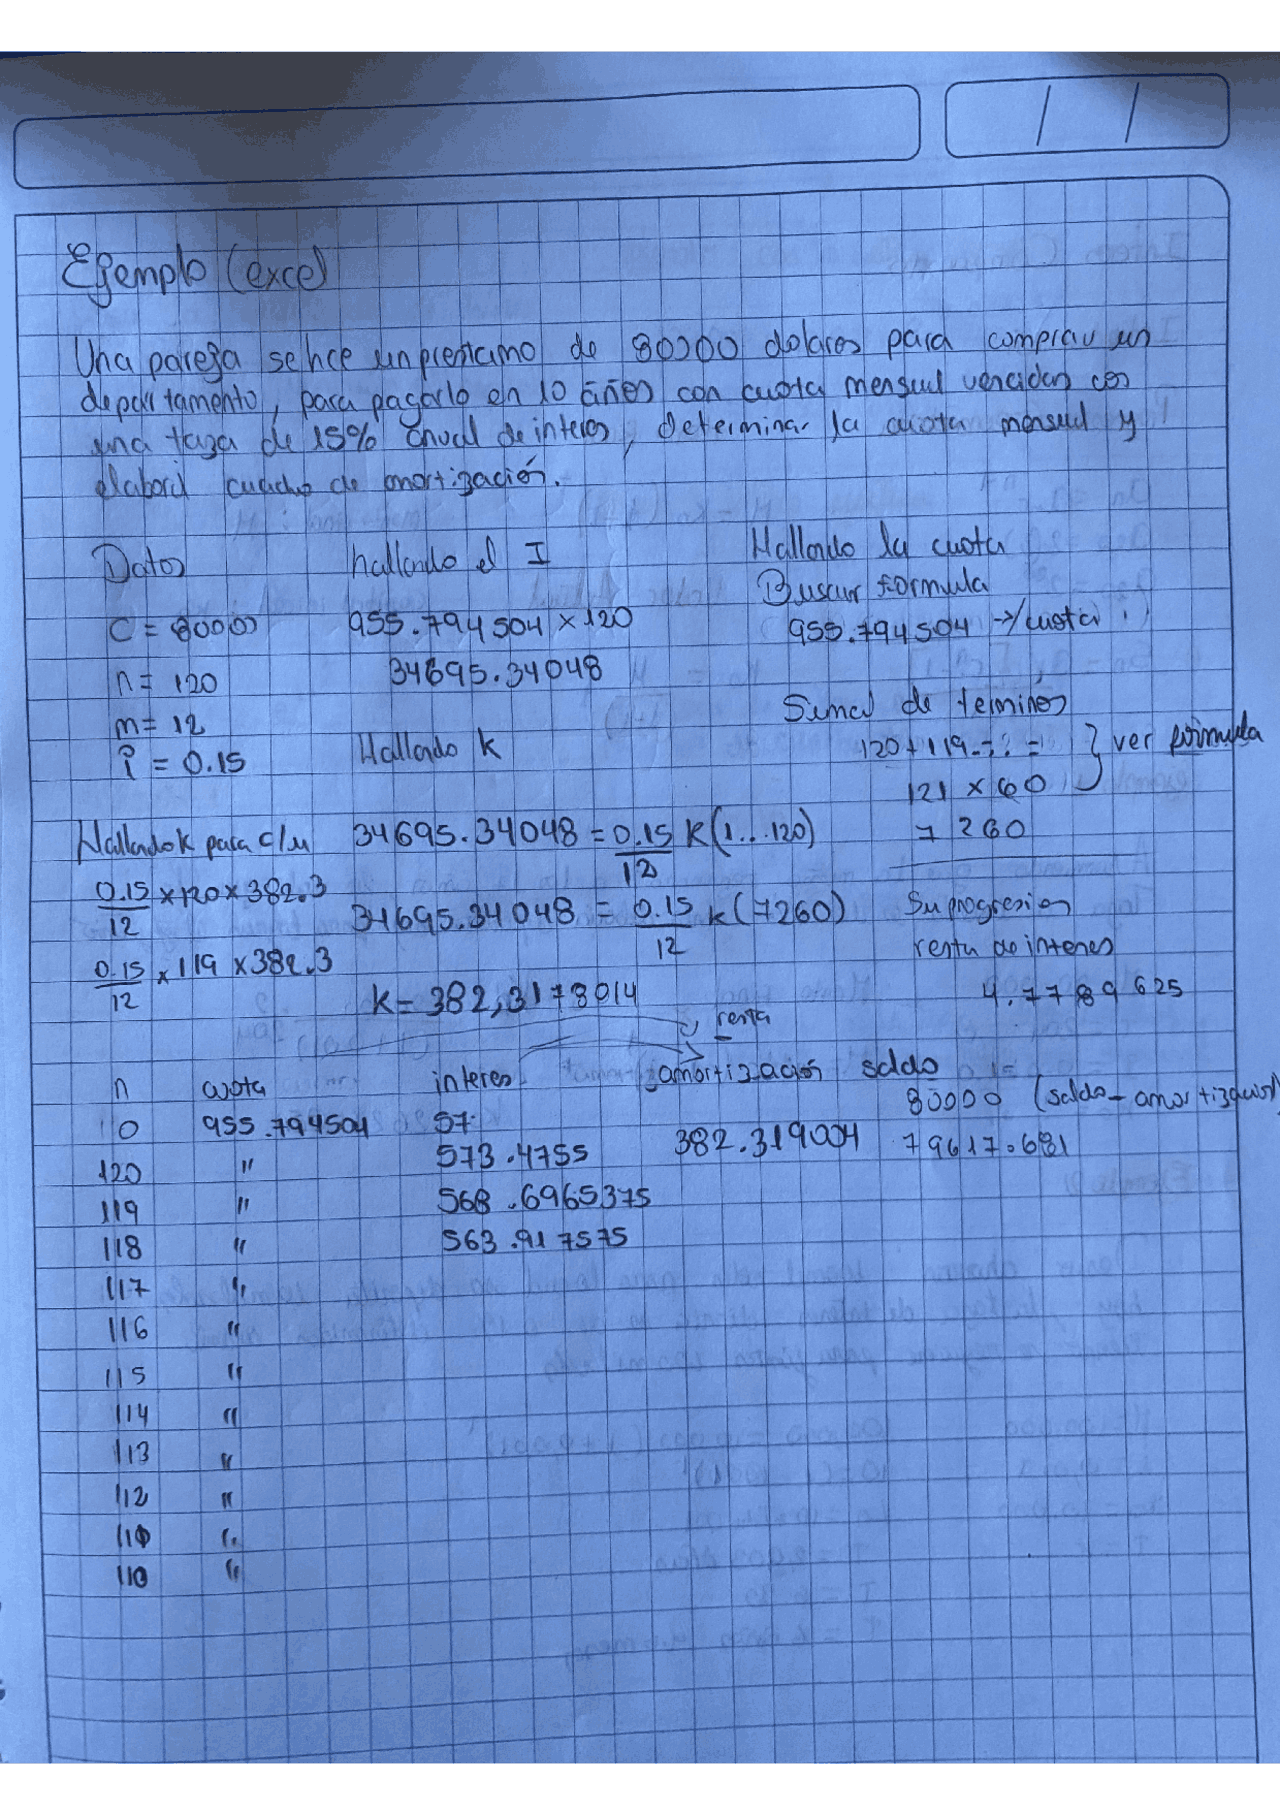 Ejemplo (excel
Una pareja se hce un prestamo de 80000 dolares para comprar un
departamento, para pagarlo en 10 años con cuota mensual vencidas con
una taza de 15% anual de interes, determinar la cuota mensual y
elabord cuadro de amortización.
Datos
C = 80000
n = 120
m = 12
i = 0.15
hallando el I
955.794504 x 120
34695.34048
Hallando la cuota
Buscar formula
955.794504 → cuota
Suma de terminos
120 + 119 -:: = } ver formula
121 x 60
7260
Hallando k
34695.34048 = 0.15/12 k(1...120)
34695.34048 = 0.15/12 k(7260)
k = 382,3178014
Hallando k para c/u
0.15/12 x 120 x 382.3
0.15/12 x 119 x 382.3
Su progresion
resta de interes
4.7789625
resta
n cuota interes amortización saldo
80000 (saldo - amortización)
0 955.794504 57.
120 " 573.4755 382.319004 79617.681
119 " 568.6965375
118 " 563.917575
117 "
116 "
115 "
114 "
113 "
112 "
110 "
110 "